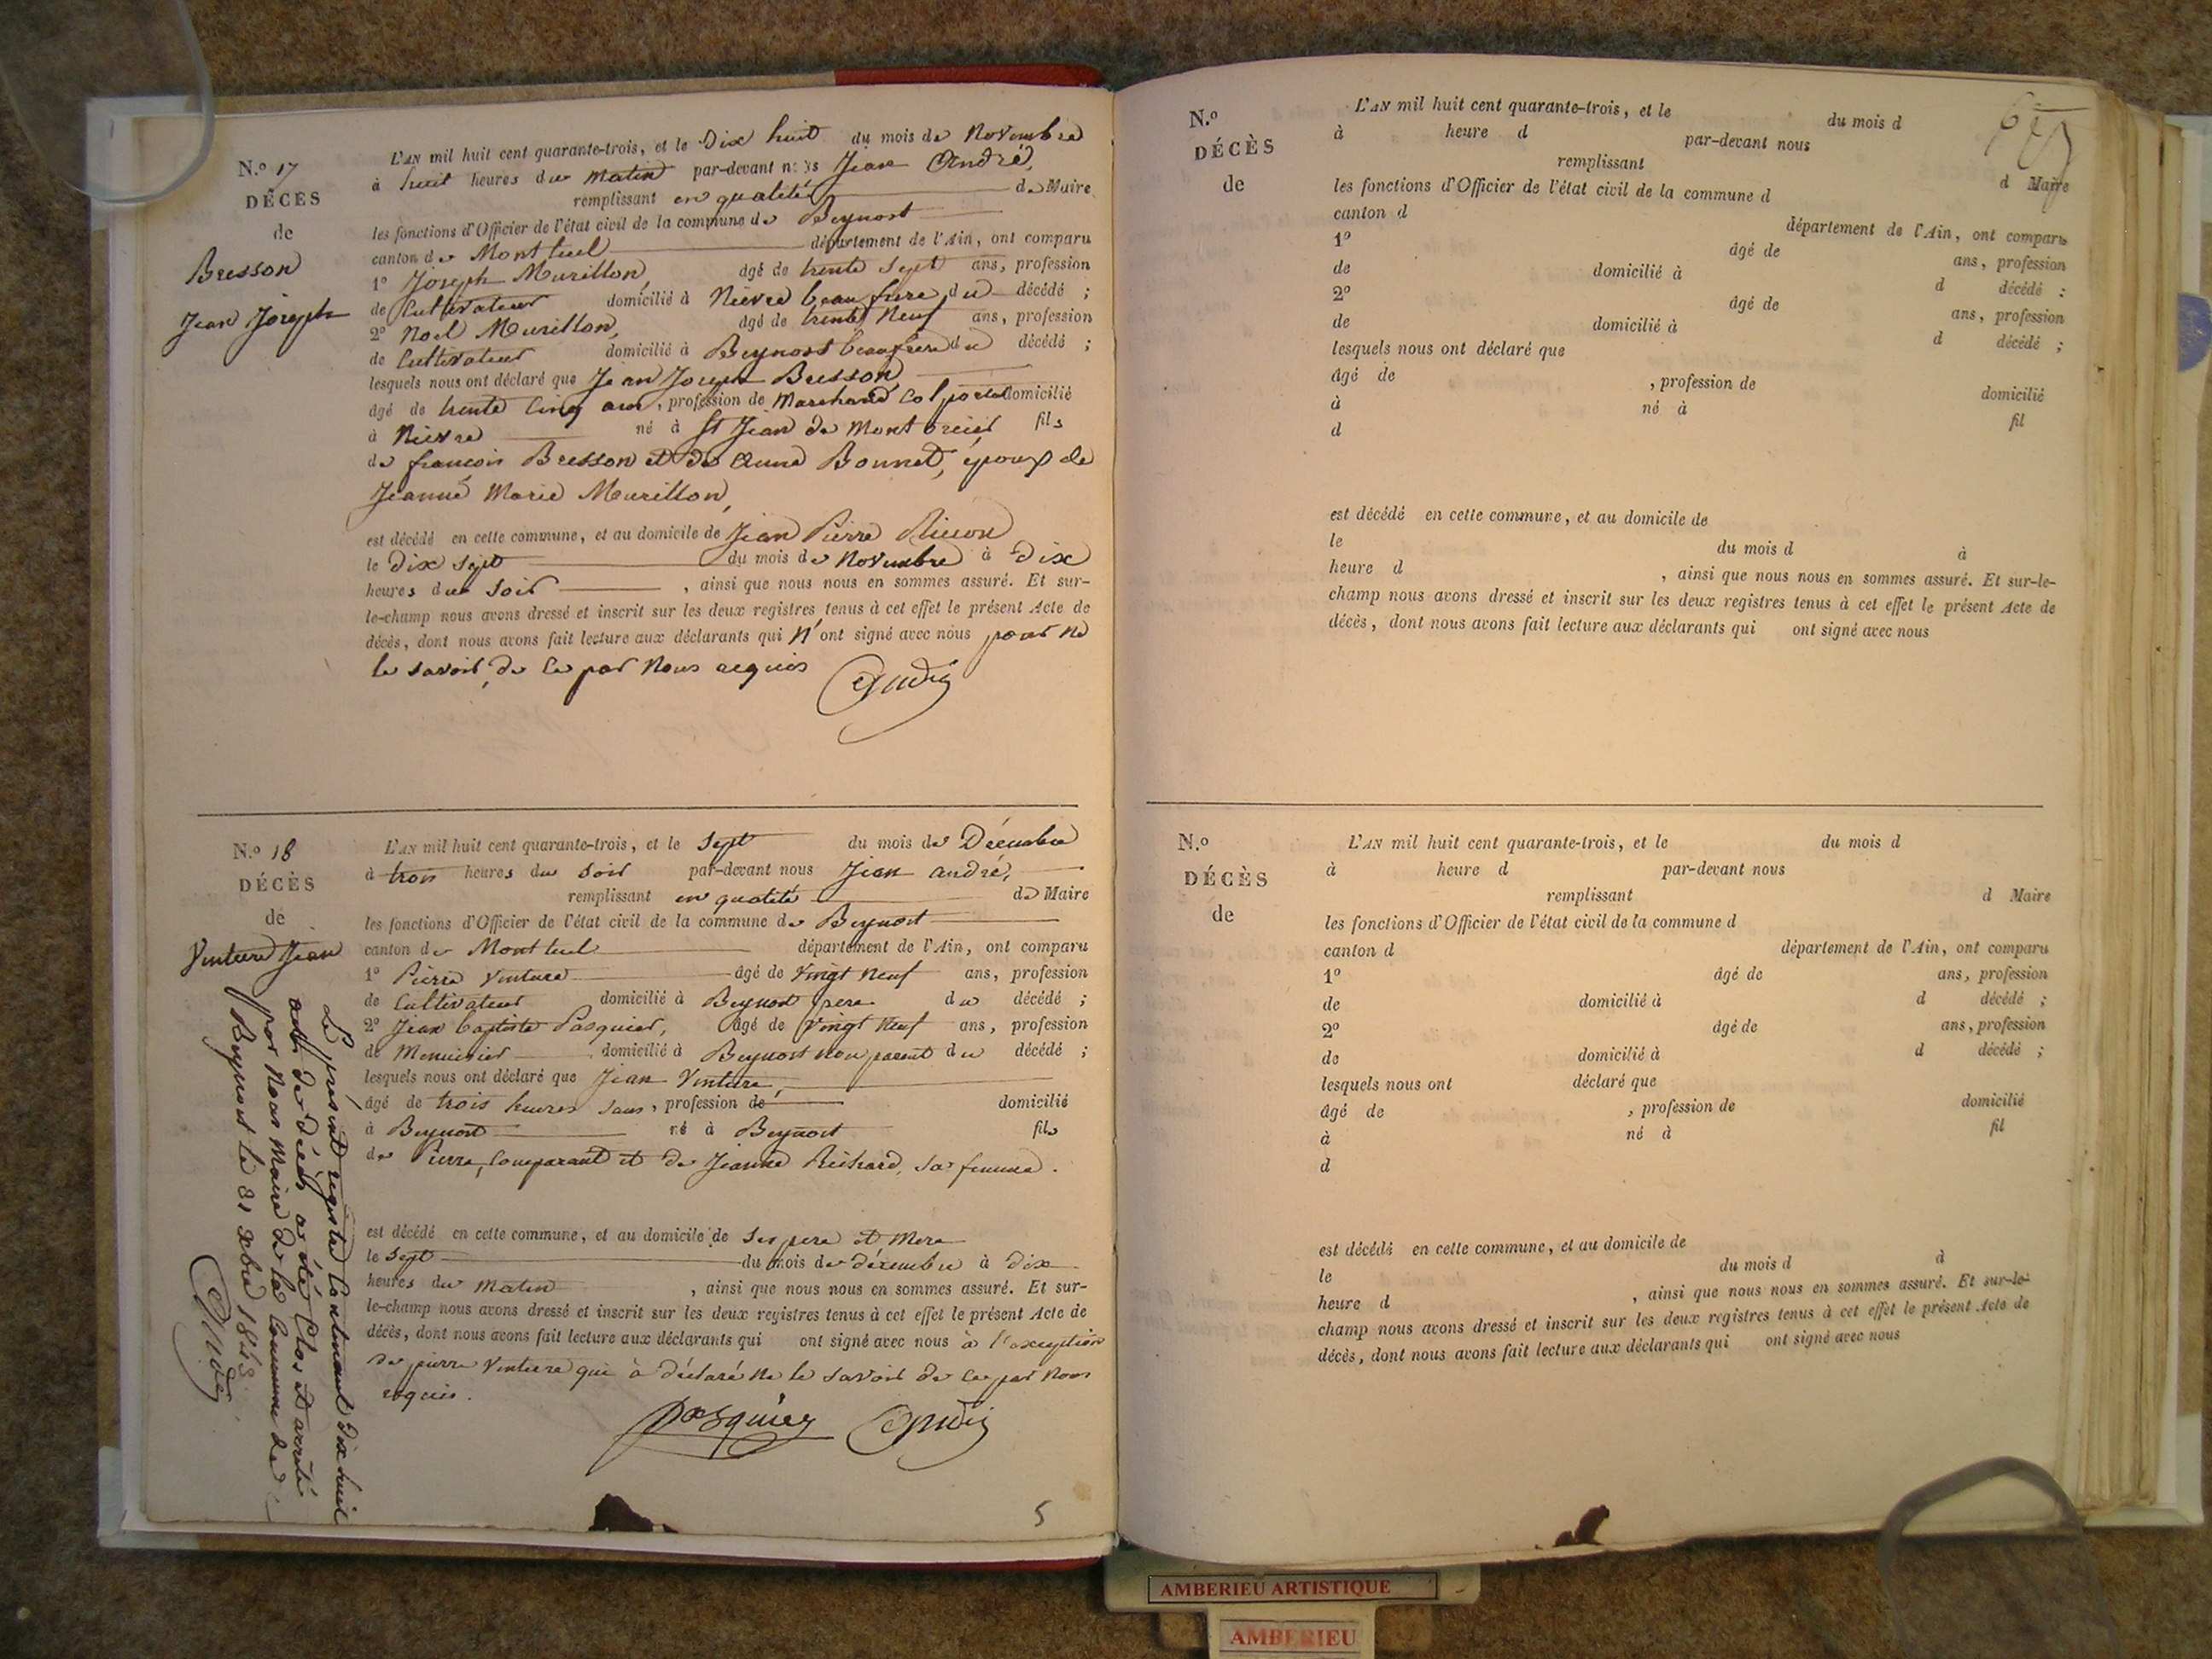 N.º 17
DÉCÈS
de
Bresson
Jean Joseph
L'AN mil huit cent quarante-trois, et le Dix huit du mois de Novembre
à huit heures du Matin par-devant nous Jean André,
remplissant en qualité de Maire
les fonctions d'Officier de l'état civil de la commune de Beynost
canton de Montluel département de l'Ain, ont comparu
1º Joseph Murillon, âgé de trente sept ans, profession
de Cultivateur domicilié à Nièvre beau frere du décédé ;
2º Noel Murillon, âgé de trente Neuf ans, profession
de Cultivateur domicilié à Beynost beaufrere du décédé ;
lesquels nous ont déclaré que Jean Joseph Bresson,
âgé de trente cinq ans, profession de Marchand Colporteur domicilié
à Nièvre né à St Jean de Mont fils
de francois Bresson et de Anne Bonnet, époux de
Jeanne Marie Murillon,
est décédé en cette commune, et au domicile de Jean Pierre
le Dix Sept du mois de Novembre à Dix
heures du Soir , ainsi que nous nous en sommes assuré. Et sur-
le-champ nous avons dressé et inscrit sur les deux registres tenus à cet effet le présent Acte de
décès, dont nous avons fait lecture aux déclarants qui n'ont signé avec nous pour ne
le savoir, de ce par Nous requis
André
N.º 18
DÉCÈS
de
Venture Jean
L'AN mil huit cent quarante-trois, et le Sept du mois de Décembre
à trois heures du Soir par-devant nous Jean andré,
remplissant en qualité de Maire
les fonctions d'Officier de l'état civil de la commune de Beynost
canton de Montluel département de l'Ain, ont comparu
1º Pierre Venture âgé de Vingt Neuf ans, profession
de Cultivateur domicilié à Beynost pere du décédé ;
2º Jean baptiste Pasquier, âgé de Vingt Neuf ans, profession
de Menuisier domicilié à Beynost non parent du décédé ;
lesquels nous ont déclaré que Jean Venture,
âgé de trois heures sans, profession de domicilié
à Beynost né à Beynost fils
de Pierre, Comparant et de Jeanne Richard, sa femme.
est décédé en cette commune, et au domicile de Ses pere et Mere
le Sept du mois de décembre à dix
heures du Matin , ainsi que nous nous en sommes assuré. Et sur-
le-champ nous avons dressé et inscrit sur les deux registres tenus à cet effet le présent Acte de
décès, dont nous avons fait lecture aux déclarants qui ont signé avec nous à l'exception
de pierre Venture qui à déclaré ne le savoir de ce par Nous
requis.
Pasquier André
Le présent registre Contenant Dix huit
actes de décès a été Clos et arrêté
par Nous Maire de la Commune de
Beynost le 31 Xbre 1843.
André
5
N.º
DÉCÈS
de
L'AN mil huit cent quarante-trois, et le du mois d
à heure d par-devant nous
remplissant d Maire
les fonctions d'Officier de l'état civil de la commune d
canton d département de l'Ain, ont comparu
1º âgé de ans, profession
de domicilié à d décédé ;
2º âgé de ans, profession
de domicilié à d décédé ;
lesquels nous ont déclaré que
âgé de , profession de domicilié
à né à fil
d
est décédé en cette commune, et au domicile de
le du mois d à
heure d , ainsi que nous nous en sommes assuré. Et sur-le-
champ nous avons dressé et inscrit sur les deux registres tenus à cet effet le présent Acte de
décès, dont nous avons fait lecture aux déclarants qui ont signé avec nous
N.º
DÉCÈS
de
L'AN mil huit cent quarante-trois, et le du mois d
à heure d par-devant nous
remplissant d Maire
les fonctions d'Officier de l'état civil de la commune d
canton d département de l'Ain, ont comparu
1º âgé de ans, profession
de domicilié à d décédé ;
2º âgé de ans, profession
de domicilié à d décédé ;
lesquels nous ont déclaré que
âgé de , profession de domicilié
à né à fil
d
est décédé en cette commune, et au domicile de
le du mois d à
heure d , ainsi que nous nous en sommes assuré. Et sur-le-
champ nous avons dressé et inscrit sur les deux registres tenus à cet effet le présent Acte de
décès, dont nous avons fait lecture aux déclarants qui ont signé avec nous
AMBERIEU ARTISTIQUE
AMBERIEU